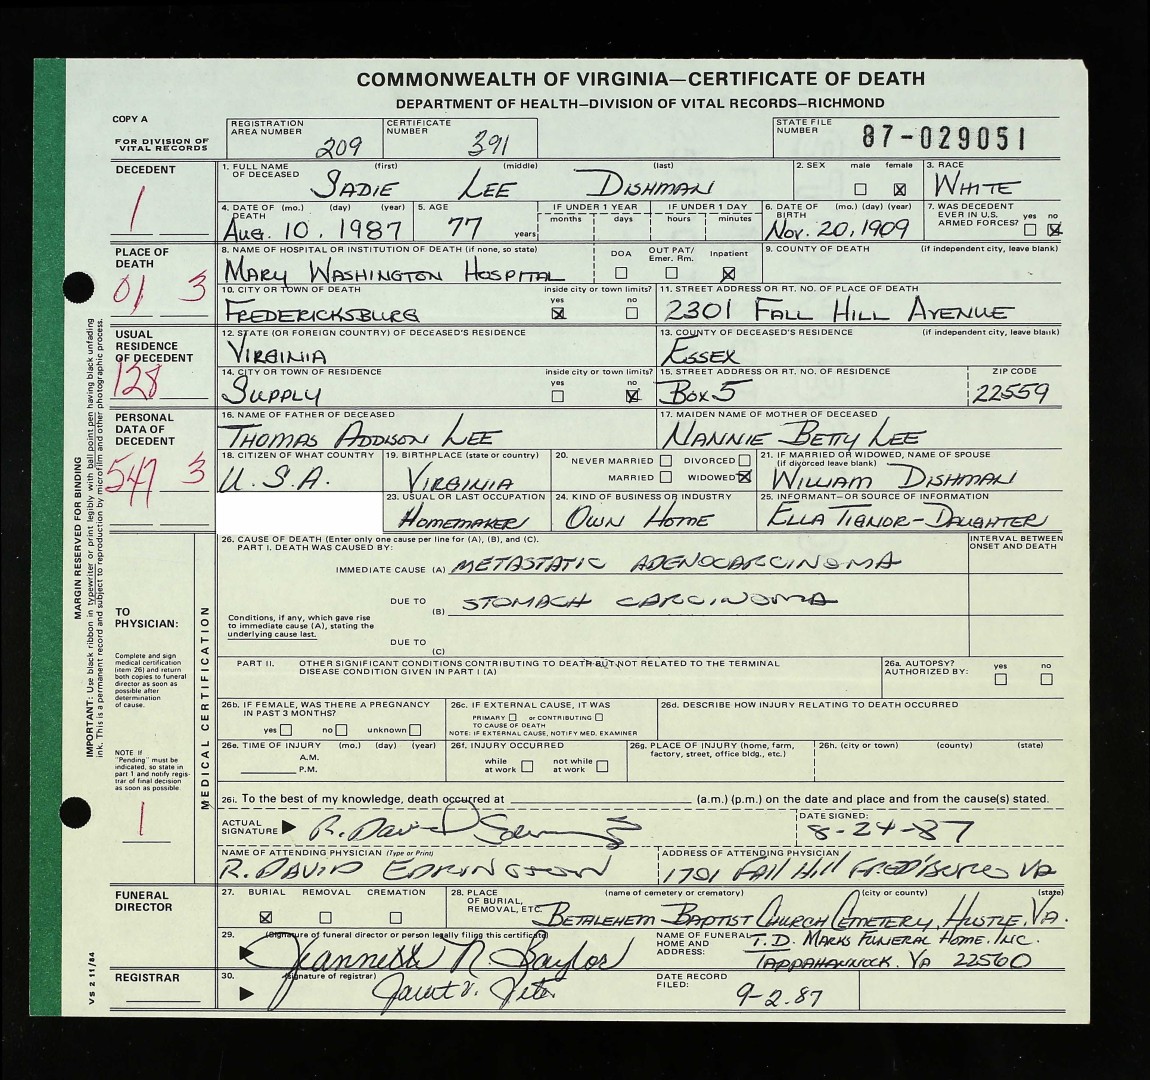 COMMONWEALTH OF VIRGINIA—CERTIFICATE OF DEATH
DEPARTMENT OF HEALTH—DIVISION OF VITAL RECORDS—RICHMOND
COPY A
FOR DIVISION OF VITAL RECORDS
REGISTRATION AREA NUMBER 209
CERTIFICATE NUMBER 391
STATE FILE NUMBER 87-029051
DECEDENT
1
1. FULL NAME OF DECEASED (first) (middle) (last)
SADIE LEE DISHMAN
2. SEX male female ☐ ☒
3. RACE WHITE
4. DATE OF DEATH (mo.) (day) (year)
AUG. 10, 1987
5. AGE 77 years
IF UNDER 1 YEAR months days
IF UNDER 1 DAY hours minutes
6. DATE OF BIRTH (mo.) (day) (year)
NOV. 20, 1909
7. WAS DECEDENT EVER IN U.S. ARMED FORCES? yes ☐ no ☒
PLACE OF DEATH
01 3
8. NAME OF HOSPITAL OR INSTITUTION OF DEATH (if none, so state)
MARY WASHINGTON HOSPITAL
DOA ☐ OUT PAT/ Emer. Rm. ☐ Inpatient ☒
9. COUNTY OF DEATH (if independent city, leave blank)
10. CITY OR TOWN OF DEATH inside city or town limits? yes ☒ no ☐
FREDERICKSBURG
11. STREET ADDRESS OR RT. NO. OF PLACE OF DEATH
2301 FALL HILL AVENUE
USUAL RESIDENCE OF DECEDENT
128
12. STATE (OR FOREIGN COUNTRY) OF DECEASED'S RESIDENCE
VIRGINIA
13. COUNTY OF DECEASED'S RESIDENCE (if independent city, leave blank)
ESSEX
14. CITY OR TOWN OF RESIDENCE inside city or town limits? yes ☐ no ☒
SUPPLY
15. STREET ADDRESS OR RT. NO. OF RESIDENCE
BOX 5
ZIP CODE 22559
PERSONAL DATA OF DECEDENT
547 3
16. NAME OF FATHER OF DECEASED
THOMAS ADDISON LEE
17. MAIDEN NAME OF MOTHER OF DECEASED
NANNIE BETTY LEE
18. CITIZEN OF WHAT COUNTRY
U.S.A.
19. BIRTHPLACE (state or country)
VIRGINIA
20. NEVER MARRIED ☐ DIVORCED ☐
MARRIED ☐ WIDOWED ☒
21. IF MARRIED OR WIDOWED, NAME OF SPOUSE (if divorced leave blank)
WILLIAM DISHMAN
23. USUAL OR LAST OCCUPATION
HOMEMAKER
24. KIND OF BUSINESS OR INDUSTRY
OWN HOME
25. INFORMANT—OR SOURCE OF INFORMATION
ELLA TIGNOR-DAUGHTER
MARGIN RESERVED FOR BINDING
IMPORTANT: Use black ribbon in typewriter or print legibly with ball point pen having black unfading
ink. This is a permanent record and subject to reproduction by microfilm and other photographic process.
TO PHYSICIAN:
Complete and sign medical certification (item 26) and return both copies to funeral director as soon as possible after determination of cause.
NOTE If "Pending" must be indicated, so state in part 1 and notify registrar of final decision as soon as possible.
1
MEDICAL CERTIFICATION
26. CAUSE OF DEATH (Enter only one cause per line for (A), (B), and (C).
PART I. DEATH WAS CAUSED BY:
INTERVAL BETWEEN ONSET AND DEATH
IMMEDIATE CAUSE (A) METASTATIC ADENOCARCINOMA
DUE TO (B) STOMACH CARCINOMA
Conditions, if any, which gave rise to immediate cause (A), stating the underlying cause last.
DUE TO (C)
PART II. OTHER SIGNIFICANT CONDITIONS CONTRIBUTING TO DEATH BUT NOT RELATED TO THE TERMINAL
DISEASE CONDITION GIVEN IN PART I (A)
26a. AUTOPSY? AUTHORIZED BY: yes ☐ no ☐
26b. IF FEMALE, WAS THERE A PREGNANCY IN PAST 3 MONTHS?
yes ☐ no ☐ unknown ☐
26c. IF EXTERNAL CAUSE, IT WAS
PRIMARY ☐ or CONTRIBUTING ☐
TO CAUSE OF DEATH
NOTE: IF EXTERNAL CAUSE, NOTIFY MED. EXAMINER
26d. DESCRIBE HOW INJURY RELATING TO DEATH OCCURRED
26e. TIME OF INJURY (mo.) (day) (year)
A.M.
P.M.
26f. INJURY OCCURRED
while at work ☐ not while at work ☐
26g. PLACE OF INJURY (home, farm, factory, street, office bldg., etc.)
26h. (city or town) (county) (state)
26i. To the best of my knowledge, death occurred at (a.m.) (p.m.) on the date and place and from the cause(s) stated.
ACTUAL SIGNATURE R. David
DATE SIGNED: 8-24-87
NAME OF ATTENDING PHYSICIAN (Type or Print)
R. DAVID EDRINGTON
ADDRESS OF ATTENDING PHYSICIAN
1701 FALL HILL FRED'BURG VA
FUNERAL DIRECTOR
27. BURIAL ☒ REMOVAL ☐ CREMATION ☐
28. PLACE OF BURIAL, REMOVAL, ETC. (name of cemetery or crematory) (city or county) (state)
BETHLEHEM BAPTIST CHURCH CEMETERY, HUSTLE, VA.
29. (Signature of funeral director or person legally filing this certificate)
Jeannette N. Baylor
NAME OF FUNERAL HOME AND ADDRESS:
T.D. MARKS FUNERAL HOME. INC.
TAPPAHANNOCK. VA 22560
REGISTRAR
30. (signature of registrar)
DATE RECORD FILED: 9-2-87
VS 2 11/84